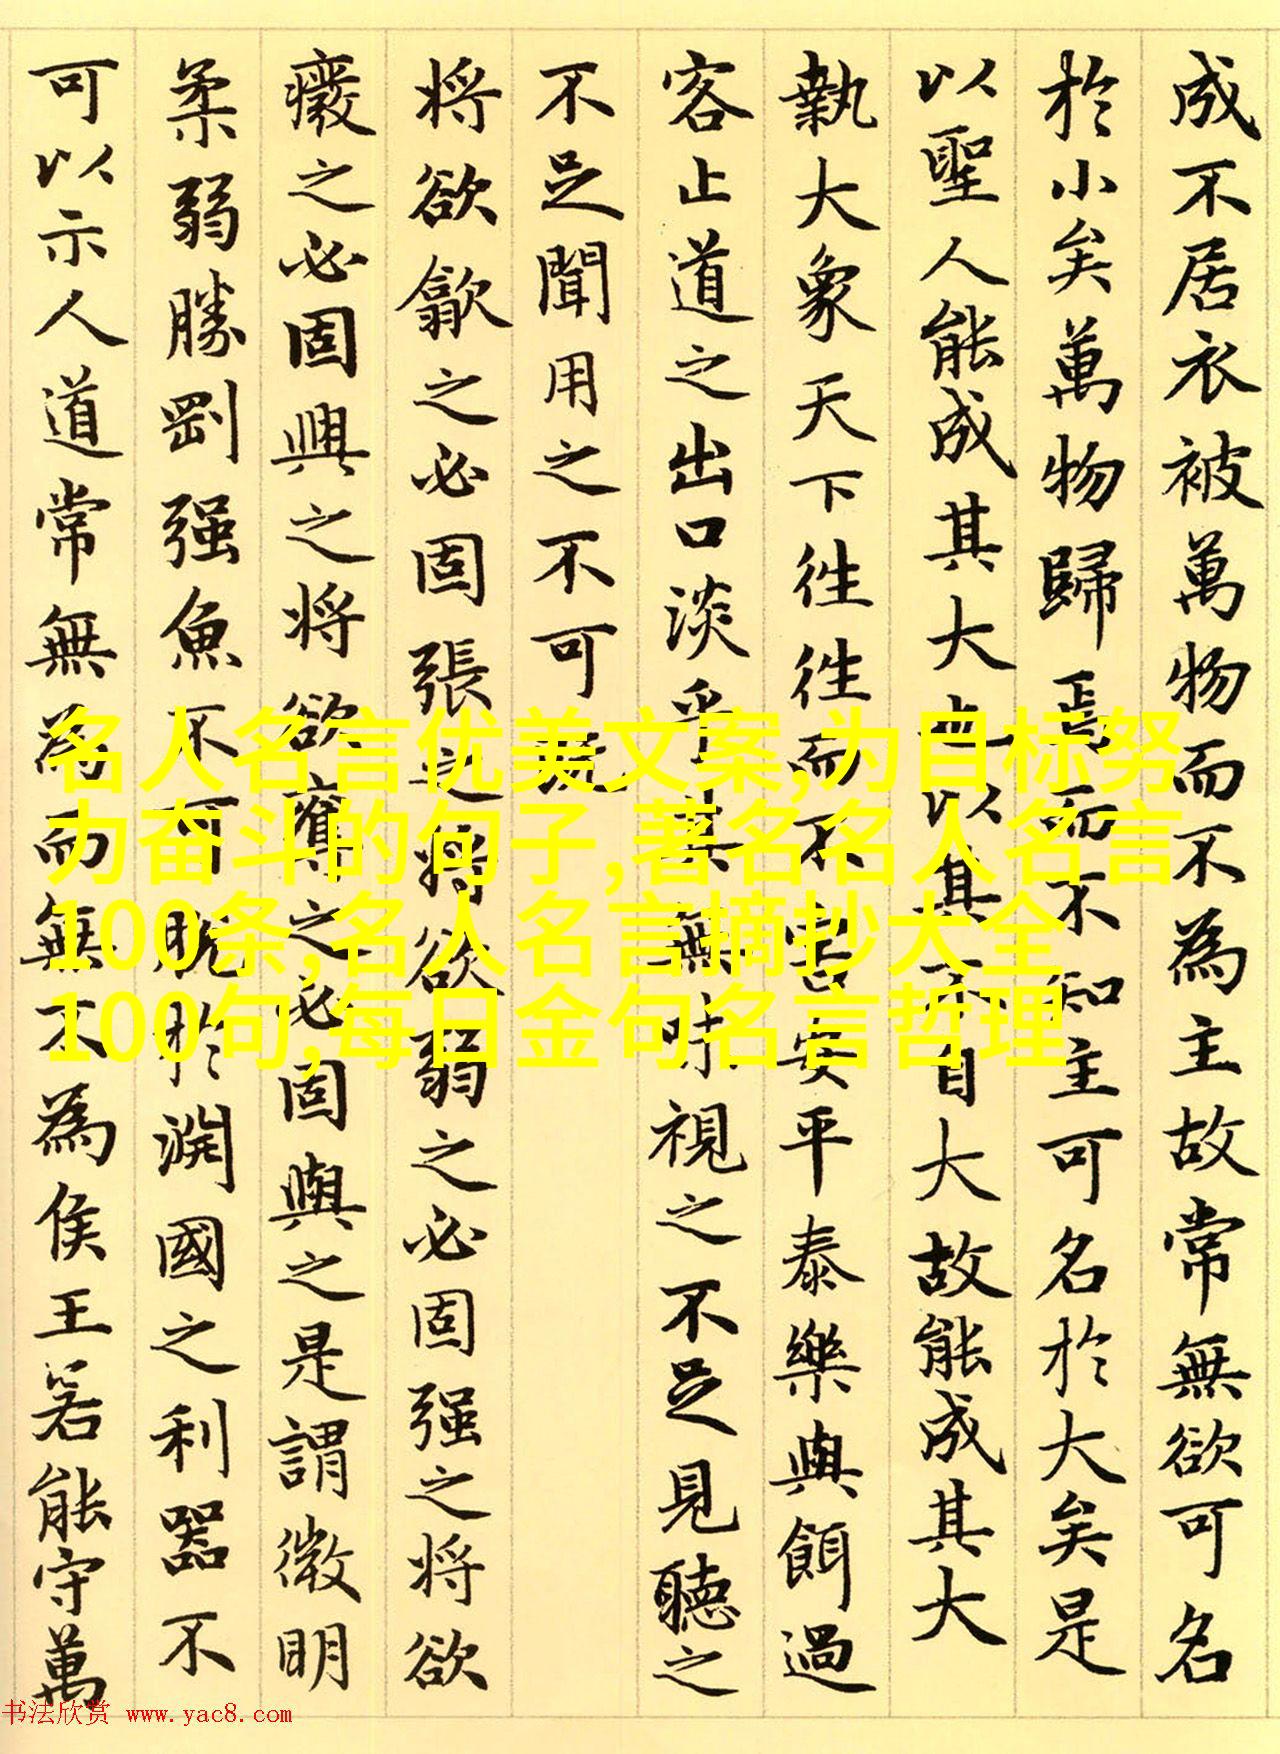 成不居衣被萬物而不為主故常無欲可名
於小矣萬物歸焉而不知主可名於大矣是
以聖人能成其大也以其不自大故能成其大
執大象天下往往而不害安平泰樂與餌過
客止道之出口淡乎其無味視之不足見聽之
不足聞用之不可既
将欲歙之必固張之将欲弱之必固强之将欲
廢之必固興之将欲奪之必固與之是謂微明
柔弱勝剛强魚不可脫於淵國之利器不
可以示人道常無為而無不為侯王若能守萬
名人名言优美文案,为目标努
力奋斗的句子,著名名人名言
100条,名人名言摘抄大全
100句,每日金句名言哲理
书法欣赏 www.yac8.com